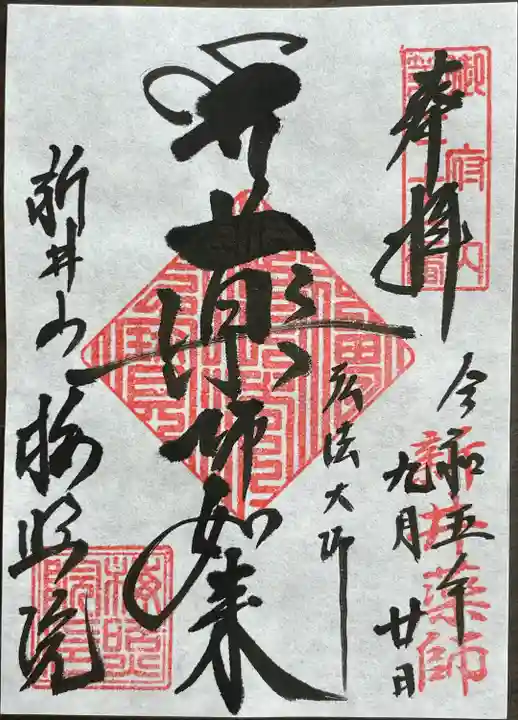 奉拝
御府内
令和五年
九月廿日
新井薬師
弘法大師
薬師如来
新井山 梅照院